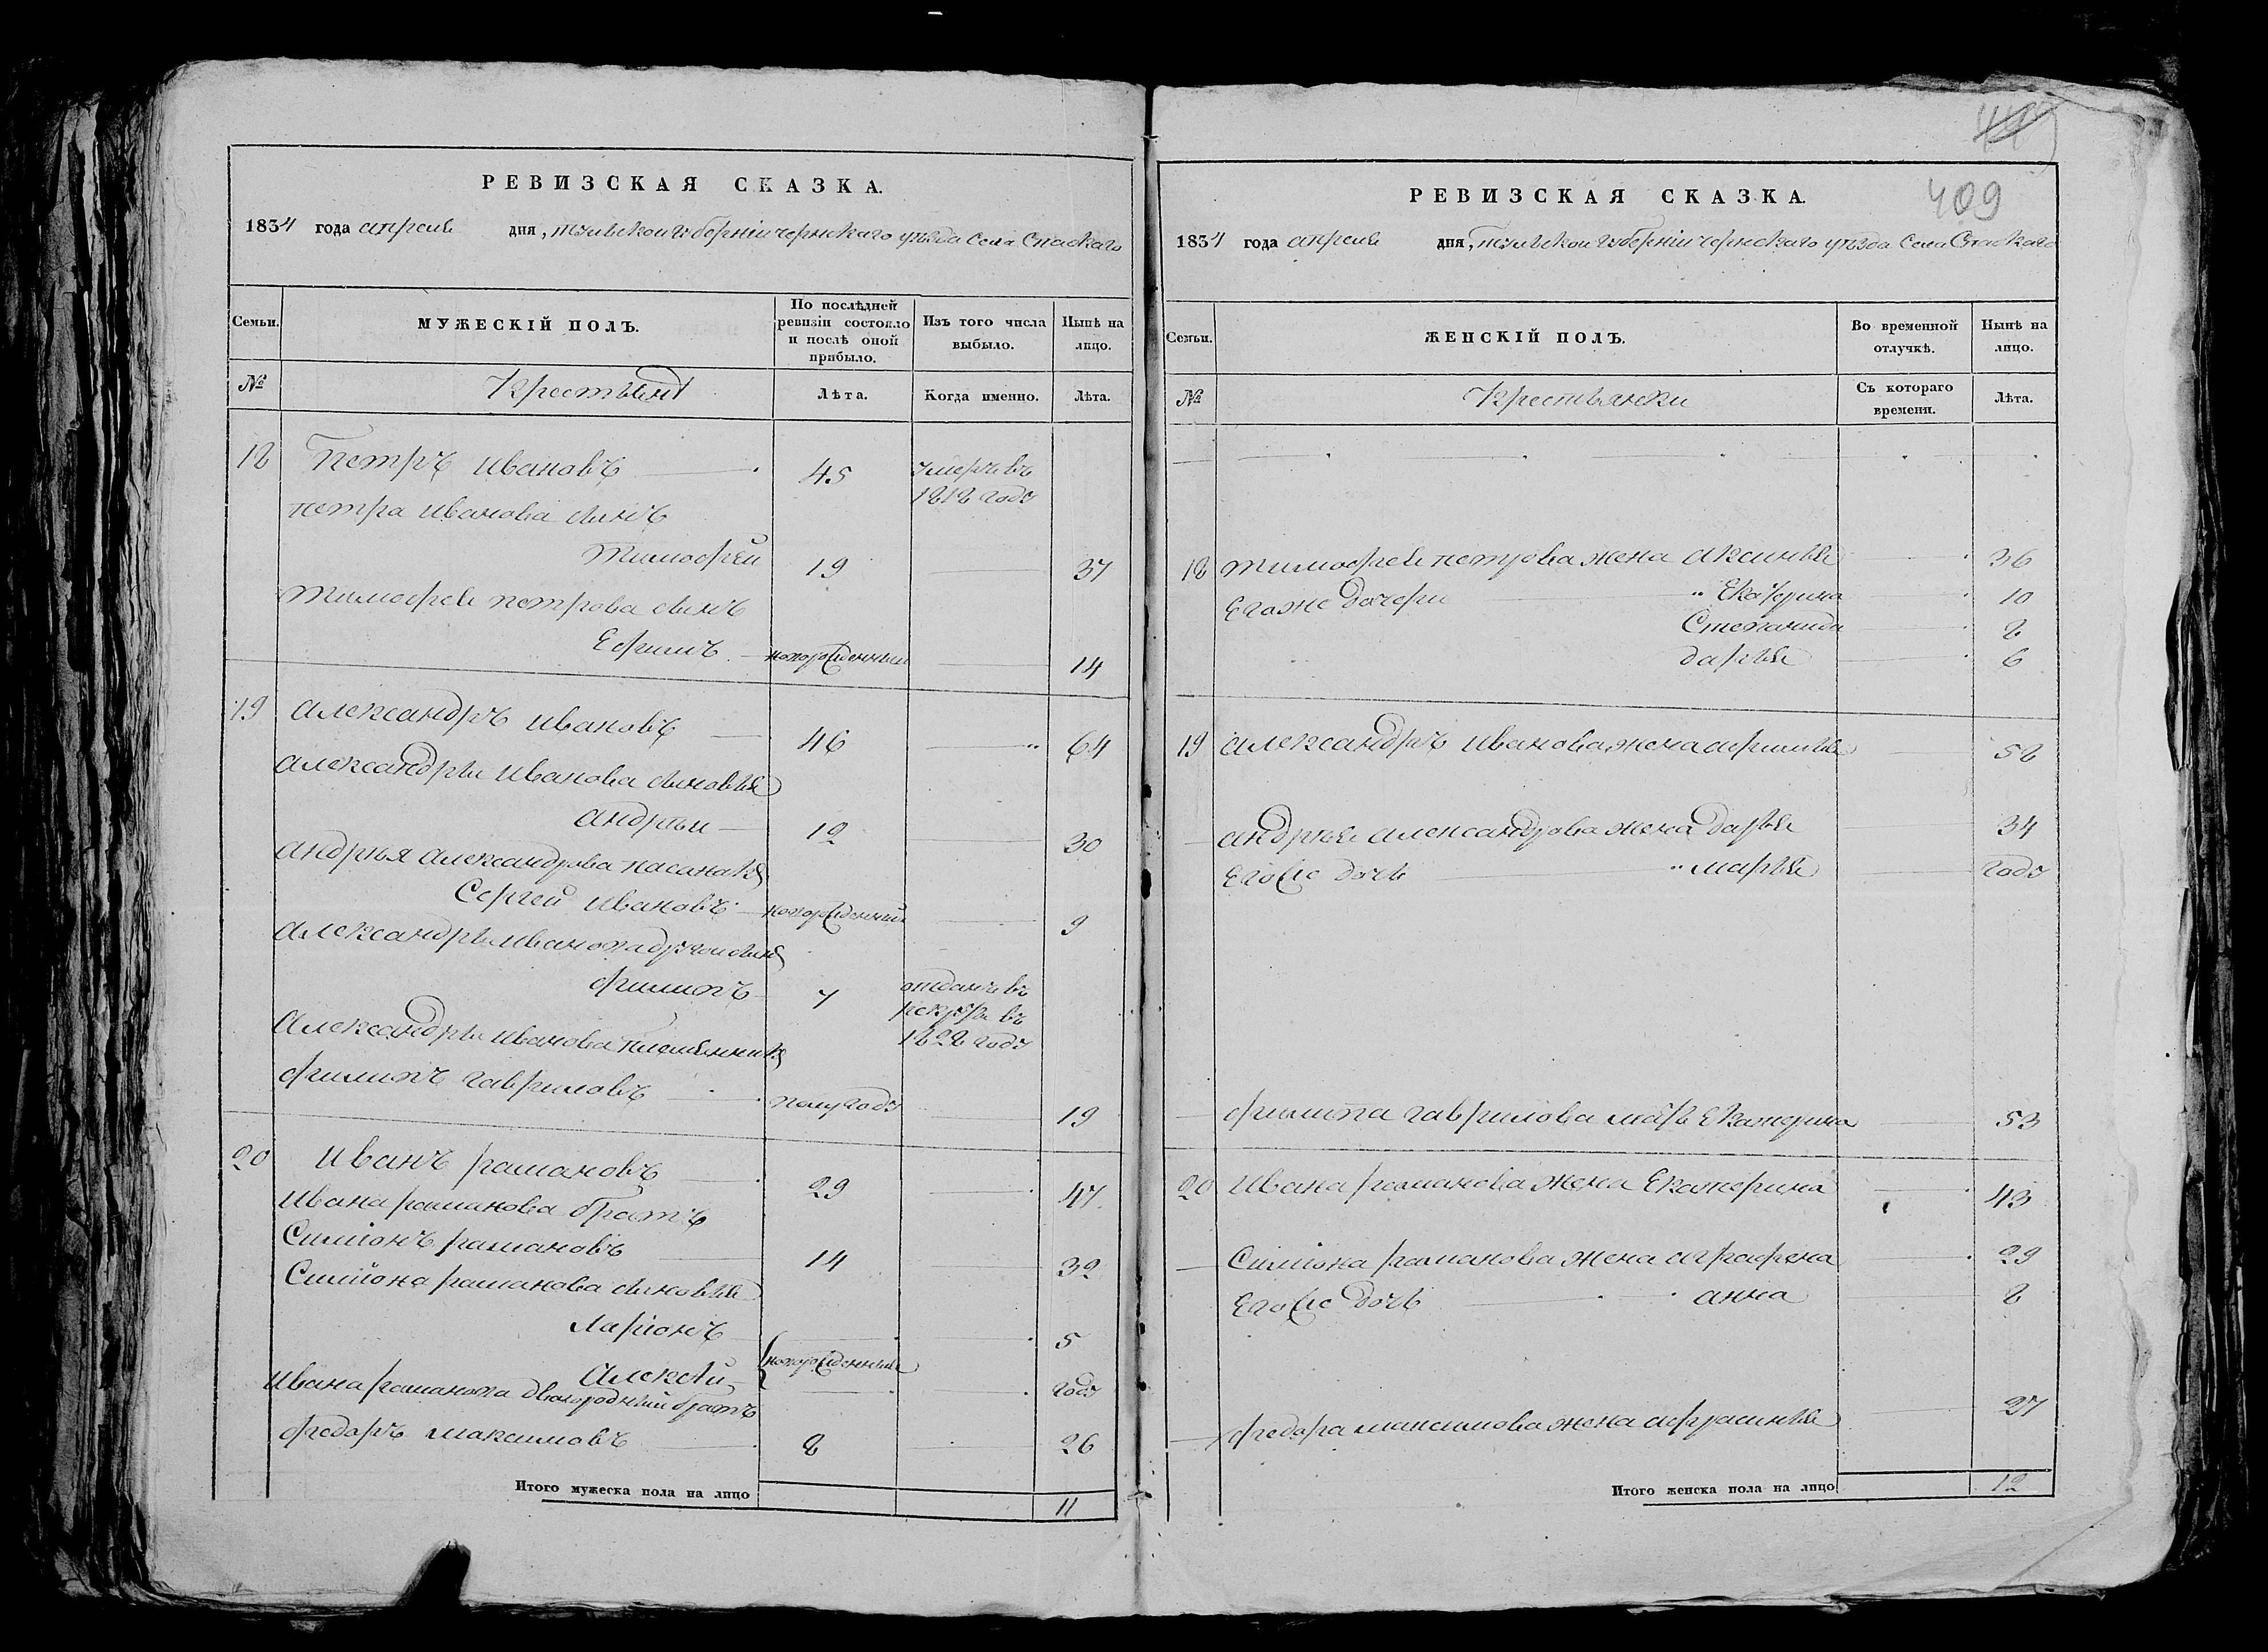 РЕВИЗСКАЯ СКАЗКА.
1834 года апреля дня, тульской губернии чернскаго уѣзда села Спаскаго
Семьи.
МУЖЕСКІЙ ПОЛЪ.
По послѣдней ревизіи состояло и послѣ оной прибыло.
Изъ того числа выбыло.
Нынѣ на лицо.
№
Крестьянѣ
Лѣта.
Когда именно.
Лѣта.
18 Петръ Ивановъ 45 умеръ въ
1818 году
петра Иванова сынъ
Тимофѣй 19 37
Тимофея петрова сынъ
Ефимъ новорожденный 14
19 Александръ Ивановъ 46 64
Александры Иванова сыновья
Андрѣи 12 30
Андрѣя Александрова пасанакъ
Сергей Ивановъ новорожденный 9
Александры Иванова другой сынъ
Филипъ 7 отданъ въ
рекруты въ
1828 году
Александры Иванова племянникъ
Филипъ гавриловъ полугоду 19
20 Иванъ рамановъ 29 47
Ивана раманова братъ
Симіонъ рамановъ 14 32
Симіона раманова сыновья
Ларіонъ 5
Алексѣй новорожденныя году
Ивана раманова двоюродный братъ
Федаръ максимовъ 8 26
Итого мужеска пола на лицо 11
447
409
РЕВИЗСКАЯ СКАЗКА.
1834 года апреля дня, тульской губернии чернскаго уѣзда Села Спаскаго
Семьи.
ЖЕНСКІЙ ПОЛЪ.
Во временной отлучкѣ.
Нынѣ на лицо.
№
Крестьянки
Съ котораго времени.
Лѣта.
18 Тимофея петрова жена Аксинья 36
Егоже дочери Екатерина 10
Степанида 8
дарья 6
19 Александръ Иванова жена афимья 58
Андрѣя Александрова жена дарья 34
Егоже дочь марья году
Филипа гаврилова мать Екатерина 53
20 Ивана раманова жена Екатерина 43
Симіона раманова жена аграфена 29
Егоже дочь анна 8
Федара максимова жена афрасинья 27
Итого женска пола на лицо 12